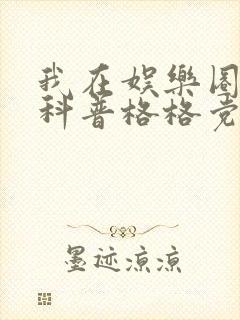 我在娱樂圈
科普格格党
墨迹凉凉